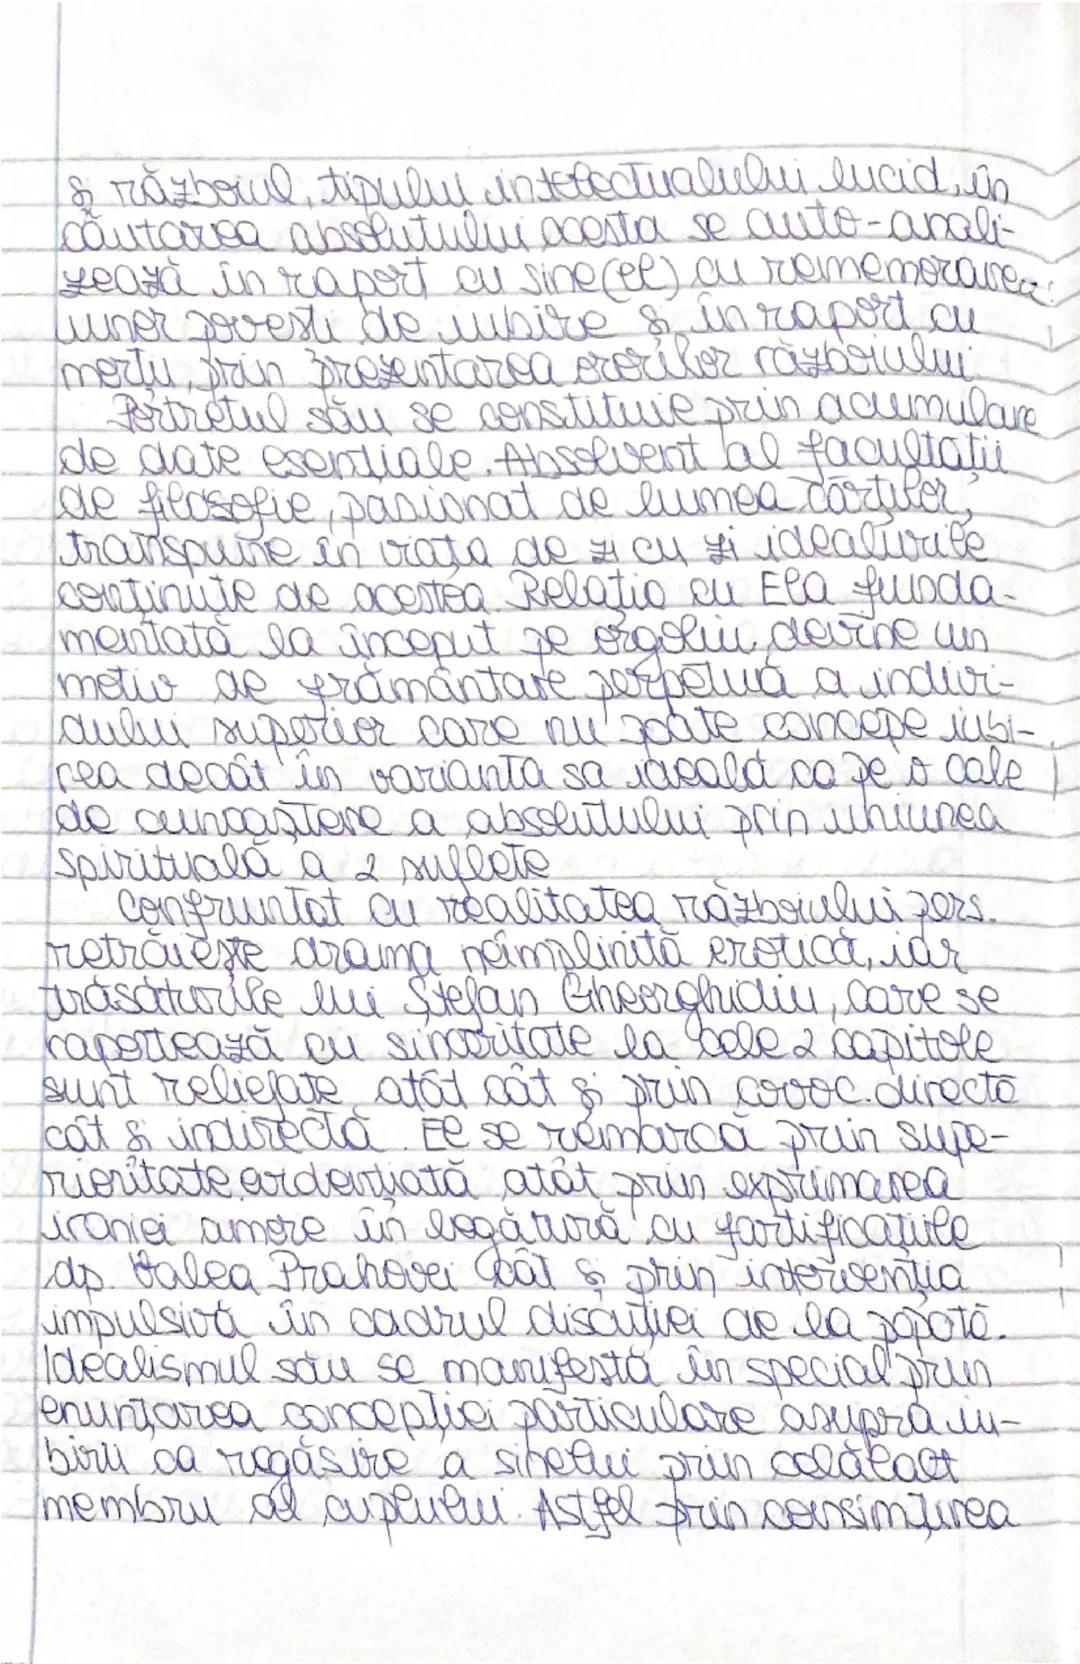 & războiul, tipului intelectualului lucid, în
căutarea absolutului acesta se auto-anali-
zează în raport cu sine (el) cu rememorarea
unor povesti de iubire & în raport cu
mortu, prin prezentarea ororilor războiului.
Portretul său se constituie prin acumulare
de date esențiale. Absolvent al facultății
de filosofie, pasionat de lumea cărților,
transpune în viața de zi cu zi idealurile
conținute de acestea. Relația cu Ela funda-
mentată la început pe orgoliu, devine un
motiv de frământare perpetuă a indivi-
dului superior care nu poate concepe iubi-
rea decât în varianta sa ideală ca pe o cale
de cunoaștere a absolutului prin uniunea
spirituală a 2 suflete
Confruntat cu realitatea războiului pers.
retrăiește drama neîmplinită erotică, iar
trăsăturile lui Ștefan Gheorghidiu, care se
raportează cu sinceritate la cele 2 capitole
sunt reliefate atât cât & prin caroc. directă
cât & indirectă. El se remarcă prin supe-
rioritate ardențiată atât prin exprimarea
ironiei amare în legătură cu fortificațiile
dp. Valea Prahovei cât & prin intervenția
impulsivă în cadrul discuției de la popotă.
Idealismul său se manifestă în special prin
enunțarea concepției particulare asupra iu-
birii ca regăsire a sinelui prin celălalt
membru al cuplului. Astfel prin consimțirea